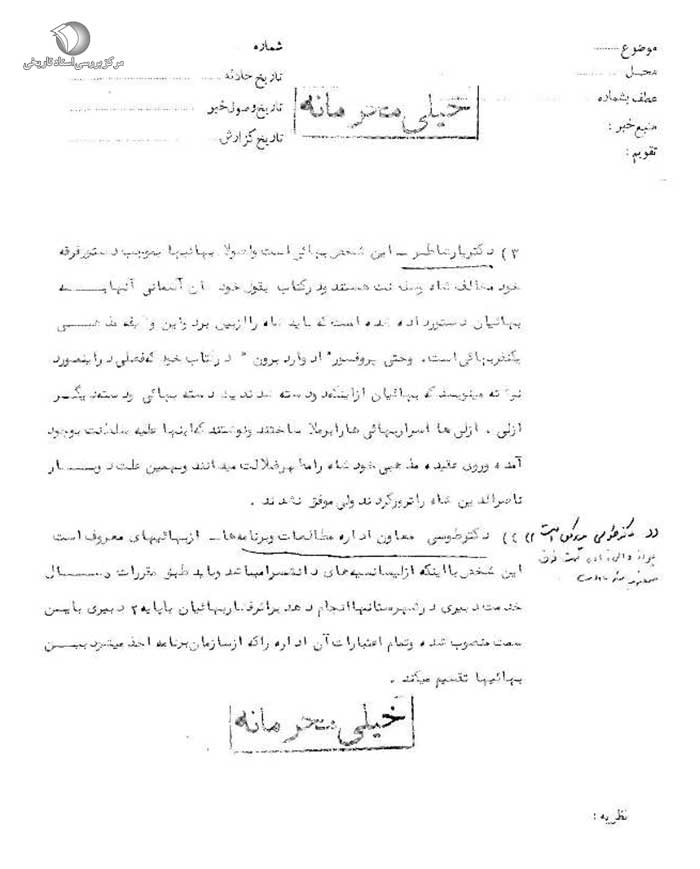 مرکز بررسی اسناد تاریخی
موضوع
شماره
محل
تاریخ حادثه
عطف بشماره
تاریخ وصول خبر
منبع خبر :
تاریخ گزارش
تقویم :
خیلی محرمانه
۳) دکتر یارشاطر ـ این شخص بهائی است واصولا بهائیها بموجب دستور فرقه
خود مخالف شاه وسلطنت هستند ودرکتاب بقول خودشان آسمانی آنها به
بهائیان دستور داده شده است که باید شاه را ازبین برد واین وظیفه مذهبی
یکنفر بهائی است . وحتی پروفسور " ادوارد برون " درکتاب خود که فصلی دراینصورد
نوشته مینویسد که بهائیان ازاینکه دودسته شدند یک دسته بهائی ودسته دیگر
ازلی ، ازلی ها اسرار بهائی هارا برملا ساختند ونوشتند که اینها علیه سلطنت بوجود
آمده وروی عقیده مذهبی خود شاه را مظهر ضلالت میدانند وبهمین علت دوبار
ناصرالدین شاه را ترور کردند ولی موفق نشدند .
۴) دکتر طوسی معاون اداره مطالعات وبرنامه‌ها ـ از بهائیهای معروف است
این شخص با اینکه از لیسانسیه‌های دانشسرا میباشد وباید طبق مقررات ۵ سال
خدمت دبیری درشهرستانها انجام دهد براثر فشار بهائیان باپایه ۲ دبیری باین
سمت منصوب شده وتمام اعتبارات آن اداره را که ازسازمان برنامه اخذ میشود بین
بهائیها تقسیم میکند .
دکتر طوسی
خیلی محرمانه
نظریه :